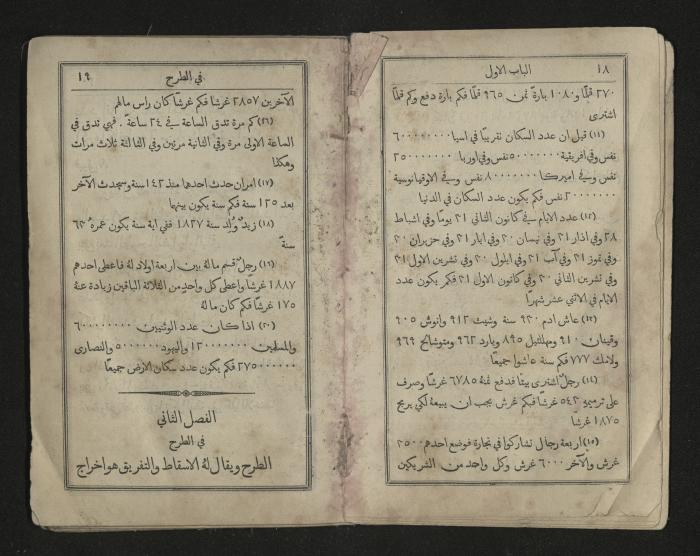 ١٨ الباب الاول
٢٧٠ قلمًا و١٠٨٠ بارة ثمن ٩٦٥ قلمًا فكم بارة دفع وكم قلمًا
اشترى
(١١) قيل ان عدد السكان تقريبًا في اسيا ٦٠٠٠٠٠٠٠٠
نفس وفي افريقية ٥٠٠٠٠٠٠٠ نفس وفي اوربا ٢٥٠٠٠٠٠٠٠
نفس وفي اميركا ٨٠٠٠٠٠٠٠ نفس وفي الاوقيانوسية
٢٠٠٠٠٠٠٠ نفس فكم يكون عدد السكان في الدنيا
(١٢) عدد الايام في كانون الثاني ٣١ يومًا وفي اشباط
٢٨ وفي اذار ٣١ وفي نيسان ٣٠ وفي ايار ٣١ وفي حزيران ٣٠
وفي تموز ٣١ وفي آب ٣١ وفي ايلول ٣٠ وفي تشرين الاول ٣١
وفي تشرين الثاني ٣٠ وفي كانون الاول ٣١ فكم يكون عدد
الايام في الاثني عشر شهرًا
(١٣) عاش ادم ٩٣٠ سنة وشيث ٩١٢ وانوش ٩٠٥
وقينان ٩١٠ ومهلئيل ٨٩٥ ويارد ٩٦٢ ومتوشالح ٩٦٩
ولامك ٧٧٧ فكم سنة عاشوا جميعًا
(١٤) رجلٌ اشترى بيتًا فدفع ثمنه ٦٧٨٥ غرشًا وصرف
على ترميمهِ ٥٤٣ غرشًا فكم غرش يجب ان يبيعهُ لكي يربح
١٨٧٥ غرشًا
(١٥) اربعة رجال تشاركوا في تجارة فوضع احدهم ٢٥٠٠
غرش والآخر ٦٠٠٠ غرش وكل واحد من الشريكين
في الطرح ١٩
الآخرين ٢٨٥٧ غرشًا فكم غرشًا كان راس مالهم
(١٦) كم مرة تدق الساعة في ٢٤ ساعة . فهي تدق في
الساعة الاولى مرة وفي الثانية مرتين وفي الثالثة ثلاث مرات
وهكذا
(١٧) امران حدث احدهما منذ ١٤٢ سنة وسيحدث الآخر
بعد ١٢٥ سنة فكم سنة يكون بينهما
(١٨) زيدٌ وُلِد سنة ١٨٢٧ ففي اية سنة يكون عمرهُ ٦٣
سنةً
(١٩) رجلٌ قسم مالهُ بين اربعة اولاد لهُ فاعطى احدهم
١٨٨٧ غرشًا واعطى كل واحدٍ من الثلاثة الباقين زيادة عنهُ
١٧٥ غرشًا فكم كان مالهُ
(٢٠) اذا كان عدد الوثنيين ٦٠٠٠٠٠٠٠٠
والمسلمين ١٢٠٠٠٠٠٠٠ واليهود ٥٠٠٠٠٠٠ والنصارى
٢٧٥٠٠٠٠٠٠ فكم يكون عدد سكان الارض جميعًا
الفصل الثاني
في الطرح
الطرح ويقال لهُ الاسقاط والتفريق هو اخراج